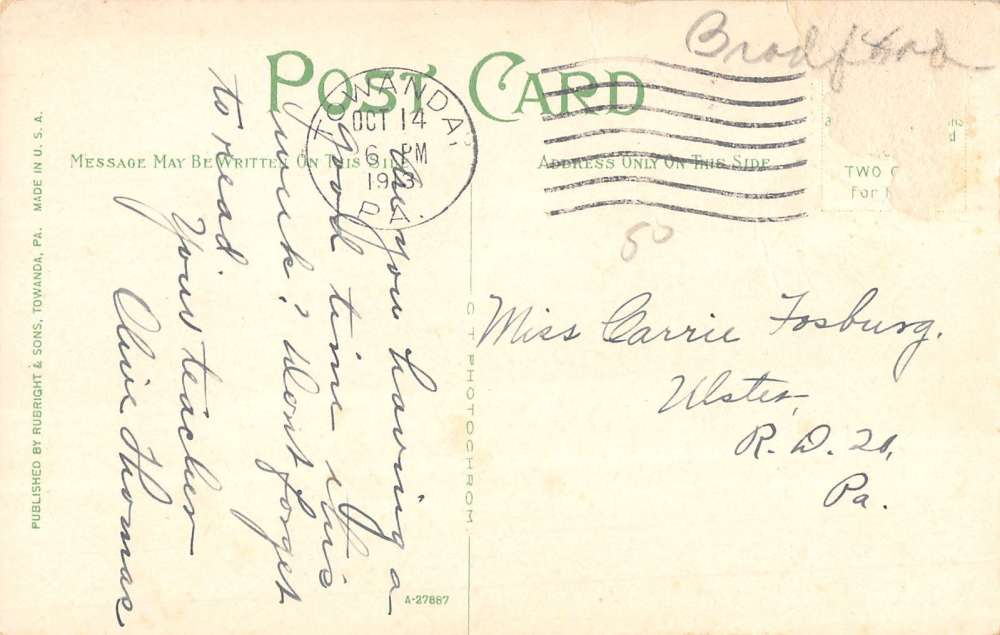 POST CARD
MESSAGE MAY BE WRITTEN ON THIS SIDE
ADDRESS ONLY ON THIS SIDE
TOWANDA,
OCT 14
6 PM
PA
TWO C
FOR
50
Are you having a
good time this
week? Dont forget
to read.
Your teacher
Olive Thomas
Miss Carrie Fosburg.
Ulster,
R. D. 20,
Pa.
C T PHOTOCHROM.
A-27887
PUBLISHED BY RUBRIGHT & SONS, TOWANDA, PA. MADE IN U. S. A.